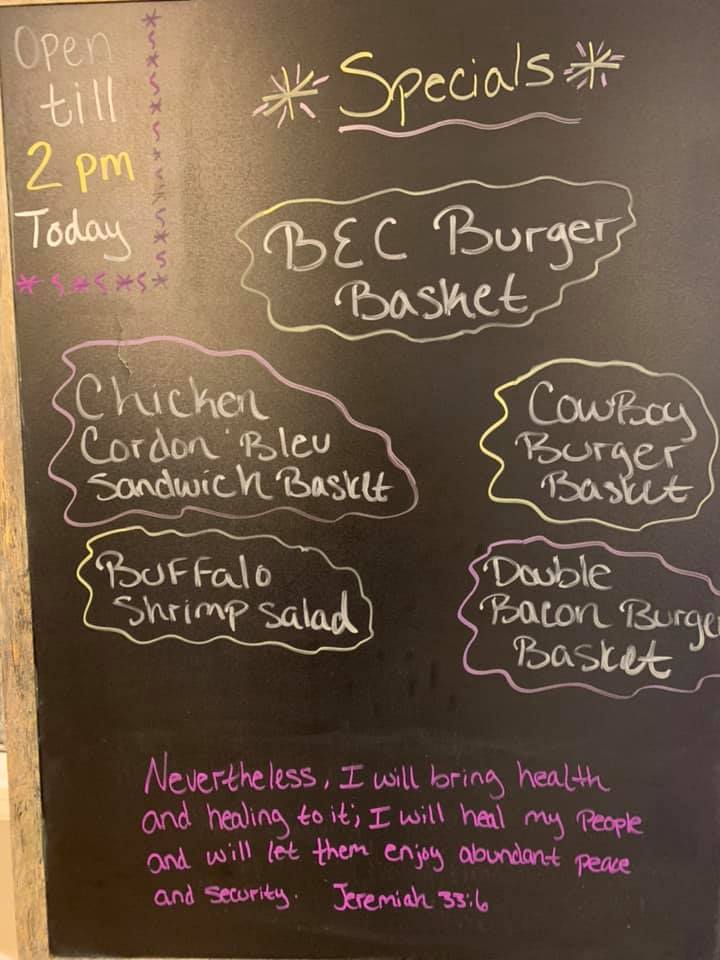 Open
till
2 pm
Today
Specials
BEC Burger
Basket
Chicken
Cordon Bleu
Sandwich Basket
CowBoy
Burger
Basket
Buffalo
Shrimp salad
Double
Bacon Burger
Basket
Nevertheless, I will bring health
and healing to it; I will heal my People
and will let them enjoy abundant peace
and security. Jeremiah 33:6